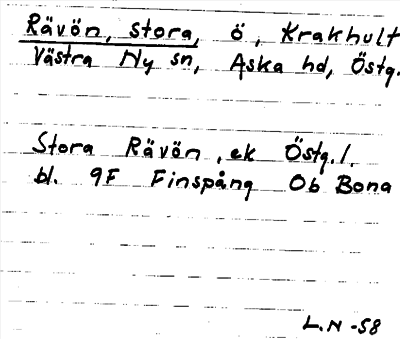 Rävön, stora, ö, Krakhult
Västra Ny sn, Aska hd, Östg.
Stora Rävön, ek Östg./.
bl. 9F Finspång Ob Bona
L.N -58